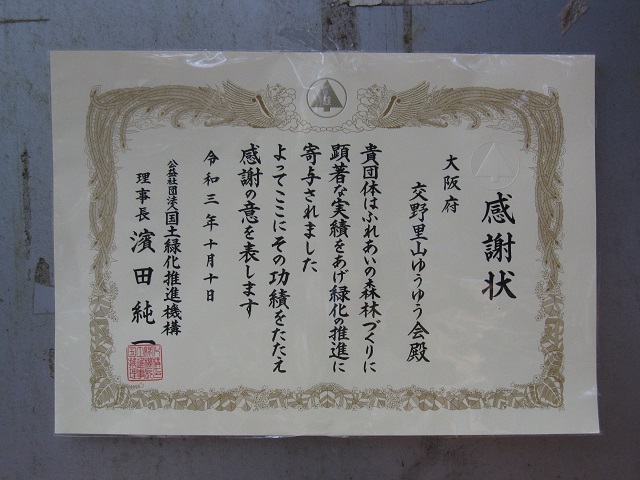 感謝状
大阪府
交野里山ゆうゆう会殿
貴団体はふれあいの森林づくりに
顕著な実績をあげ緑化の推進に
寄与されました
よってここにその功績をたたえ
感謝の意を表します
令和三年十月十日
公益社団法人国土緑化推進機構
理事長 濱田純一